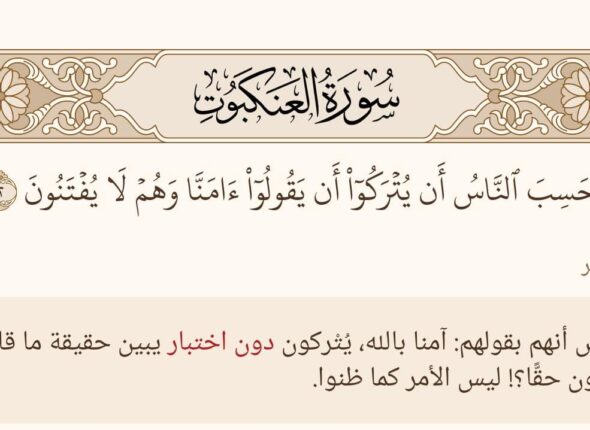 سُورَةُ العَنكَبُوتِ
حَسِبَ ٱلنَّاسُ أَن يُتۡرَكُوٓاْ أَن يَقُولُوٓاْ ءَامَنَّا وَهُمۡ لَا يُفۡتَنُونَ
أنهم بقولهم: آمنا بالله، يُتْركون دون اختبار يبين حقيقة ما
حقًّا؟! ليس الأمر كما ظنوا.